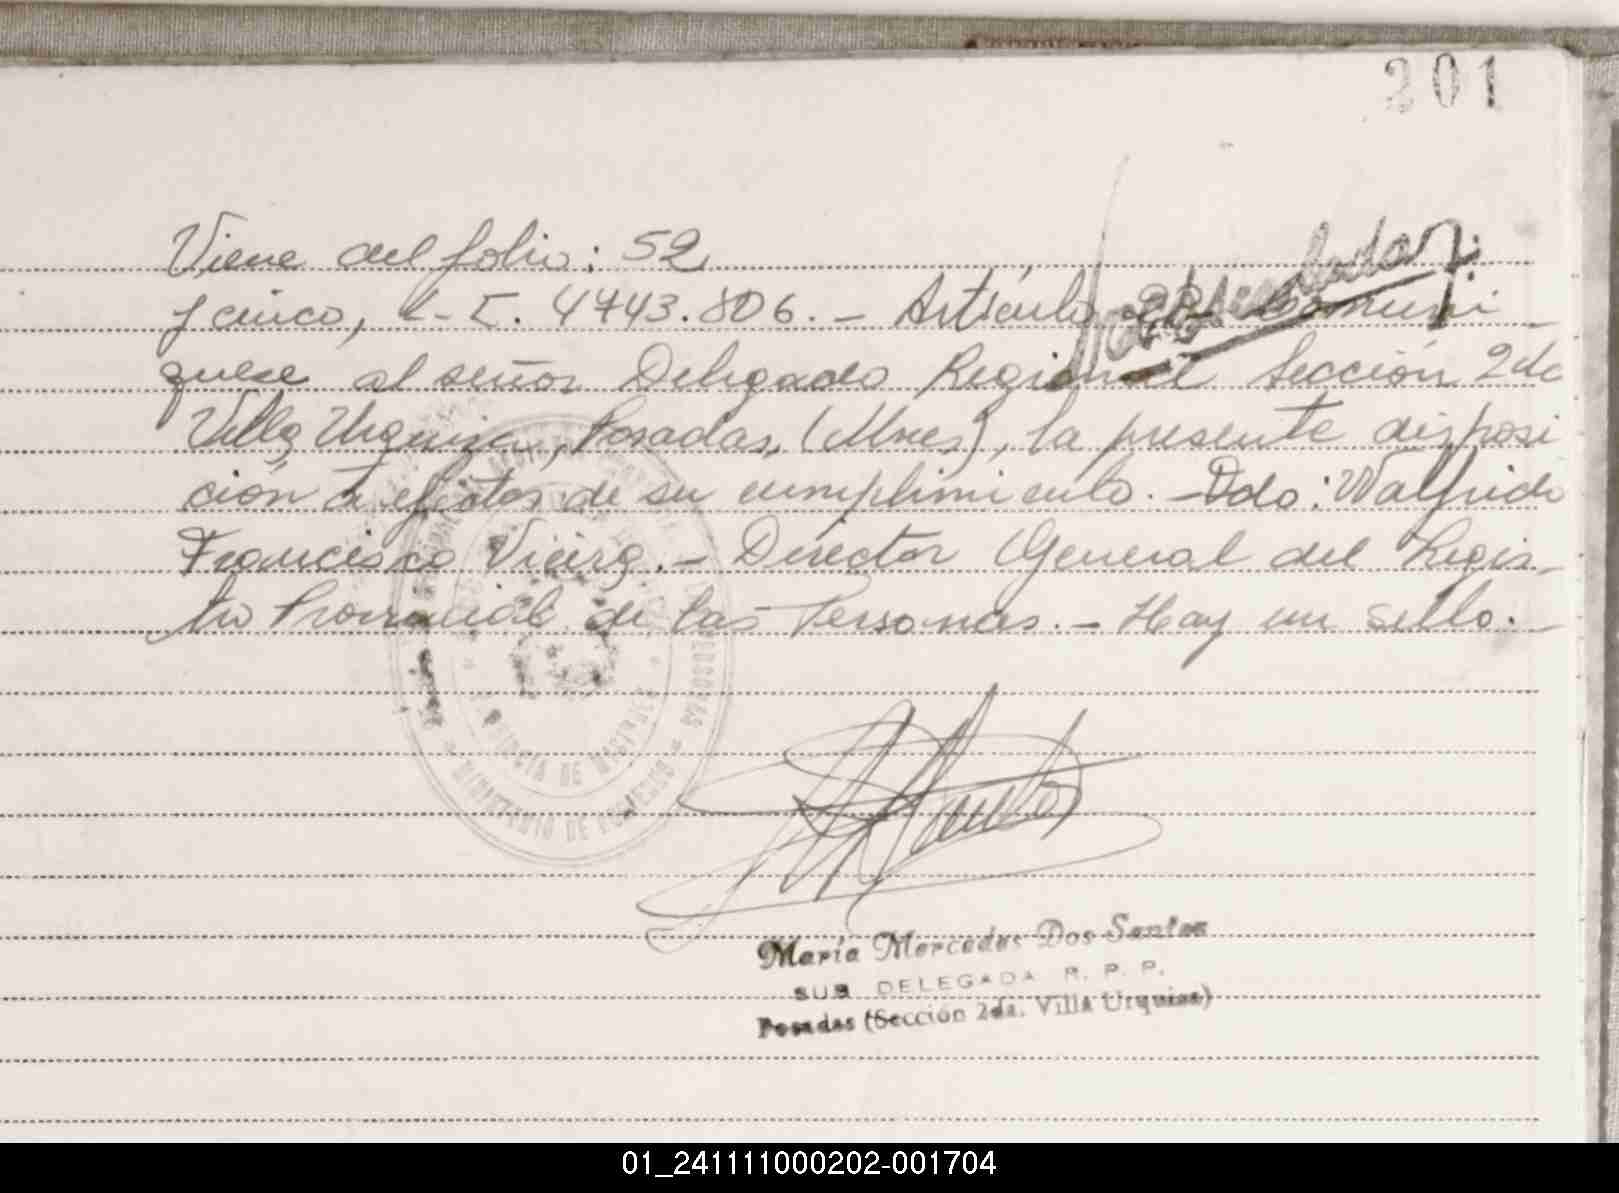 201
Viene del folio: 52
y cinco, L.E. 4743.806.- Artículo 2º- Comuní
quese al señor Delegado Regional Sección 2da
Villa Urquiza, Posadas, (Mnes), la presente disposi
ción a efectos de su cumplimiento.- Ddo: Walfrido
Francisco Vieira.- Director General del Regis-
tro Provincial de las Personas.- Hay un sello.-
DE LAS PERSONAS
MINISTERIO DE GOBIERNO
PROVINCIA DE MISIONES
María Mercedes Dos Santos
SUB DELEGADA R. P. P.
Posadas (Sección 2da. Villa Urquiza)
01_241111000202-001704